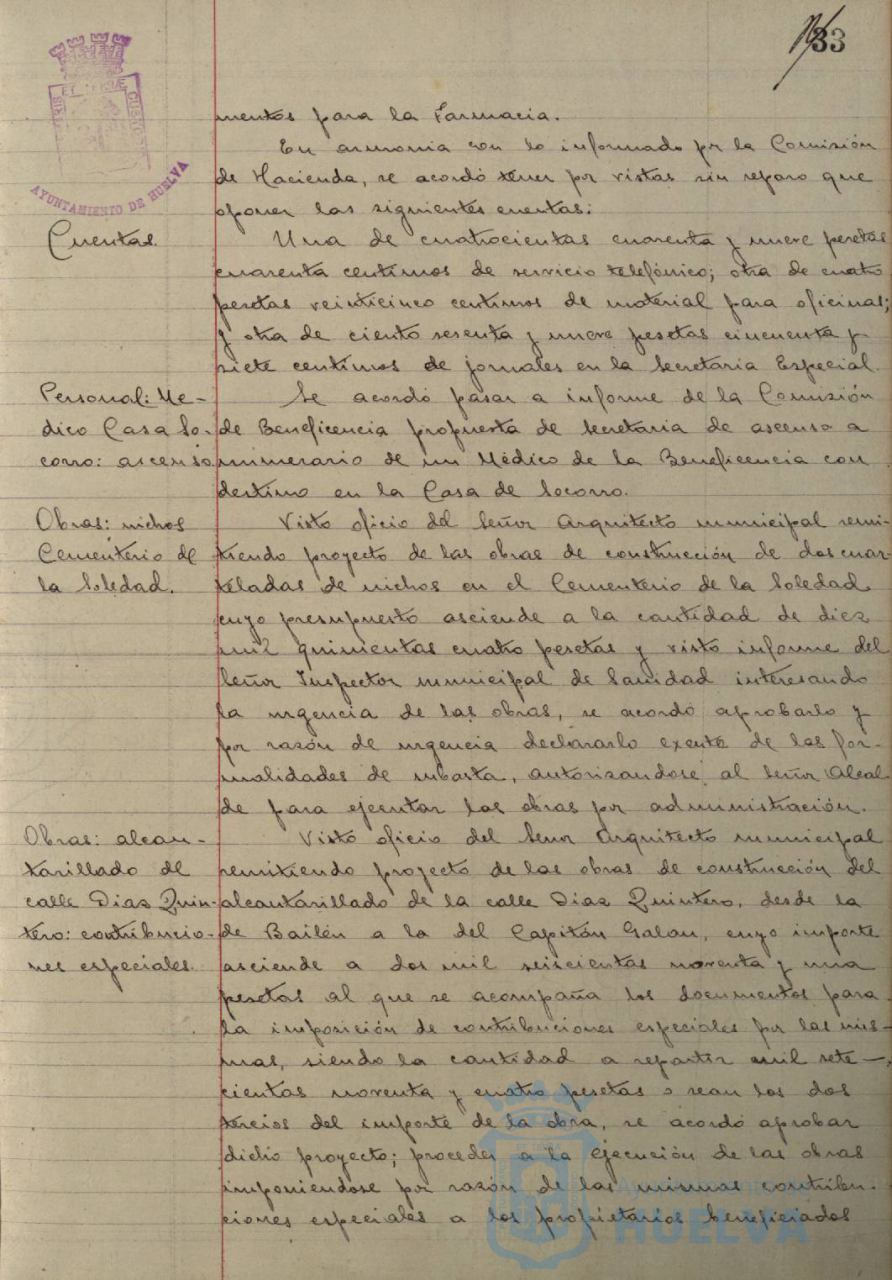 33
AYUNTAMIENTO DE HUELVA
mentos para la Farmacia.
En armonia con lo informado pr la Comisión
de Hacienda, se acordó tener por vistas sin reparo que
oponer las siguientes cuentas:
Cuentas.
Una de cuatrocientas cuarenta y nueve pesetas
cuarenta centimos de servicio telefónico; otra de cuatro
pesetas veinticinco centimos de material para oficinas;
y otra de ciento sesenta y nueve pesetas cincuenta y
siete centimos de jornales en la Secretaria Especial.
Personal: Me-
dico Casa So-
corro: ascenso
Se acordó pasar a informe de la Comisión
de Beneficencia propuesta de Secretaria de ascenso a
numerario de un Médico de la Beneficencia con
destino en la Casa de Socorro.
Obras: nichos
Cementerio de
la Soledad.
Visto oficio del Señor Arquitecto municipal remi-
tiendo proyecto de las obras de construcción de dos cuar-
teladas de nichos en el Cementerio de la Soledad
cuyo presupuesto asciende a la cantidad de diez
mil quinientas cuatro pesetas y visto informe del
Señor Inspector municipal de Sanidad interesando
la urgencia de las obras, se acordó aprobarlo y
por razón de urgencia declararlo exento de las for-
malidades de subasta, autorizandose al Señor Alcal
de para ejecutar las obras por administración.
Obras: alcan-
tarillado de
calle Dias Quin-
tero: contribucio-
nes especiales.
Visto oficio del Senor Arquitecto municipal
remitiendo proyecto de las obras de construcción del
alcantarillado de la calle Dias Quintero, desde la
de Bailén a la del Capitán Galan, cuyo importe
asciende a dos mil seiscientas noventa y una
pesetas al que se acompaña los documentos para
la imposición de contribuciones especiales por las mis-
mas, siendo la cantidad a repartir mil sete-
cientas noventa y cuatro pesetas o sean los dos
tercios del importe de la obra, se acordó aprobar
dicho proyecto; proceder a la ejecución de las obras
imponiendose por razón de las mismas contribu-
ciones especiales a los propietarios beneficiados
HUELVA